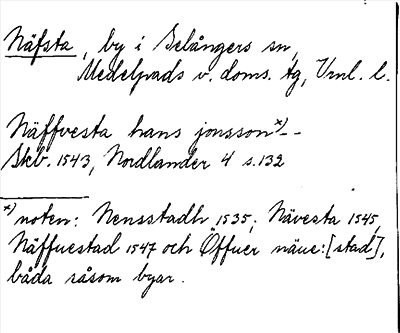 Näfsta, by i Selångers sn,
Medelpads v. doms. tg, Vrnl. l.
Näffvesta hans jonsson x) --
Skb. 1543, Nordlander 4 s. 132
x) noten: Nensstadh 1535; Nävesta 1545,
Näffuestad 1547 och Öffuer näue:[stad],
båda såsom byar.